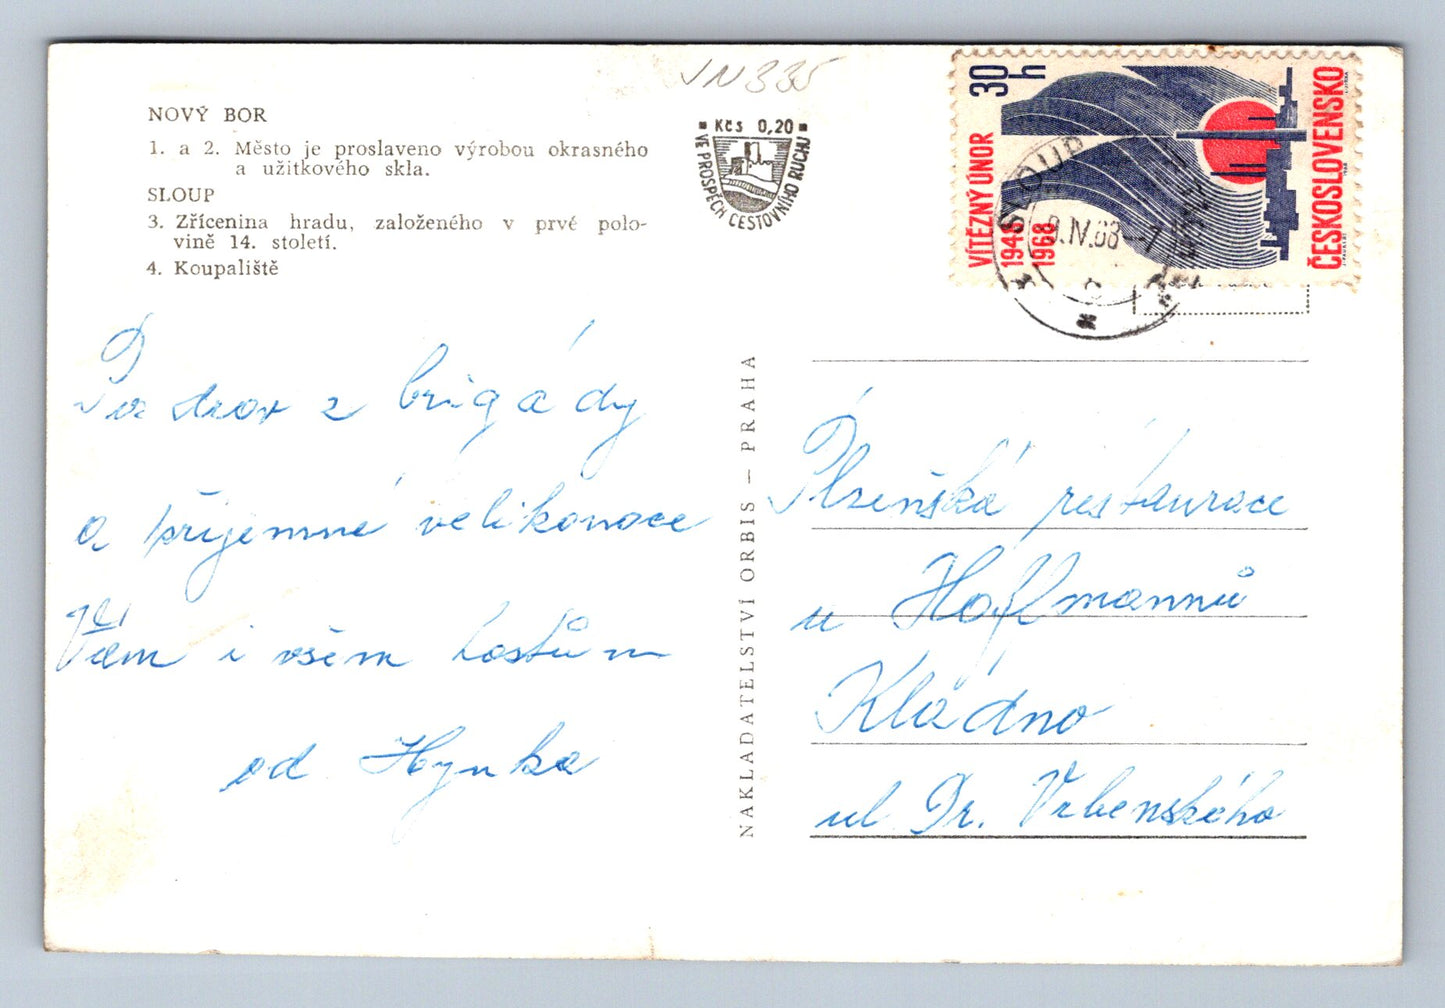 NOVÝ BOR
1. a 2. Město je proslaveno výrobou okrasného
a užitkového skla.
SLOUP
3. Zřícenina hradu, založeného v prvé polo-
vině 14. století.
4. Koupaliště
Pozdrav z brigády
a příjemné velikonoce
Vám i všem hostům
od Hynka
VN335
Kčs 0,20
VE PROSPĚCH CESTOVNÍHO RUCHU
NAKLADATELSTVÍ ORBIS — PRAHA
30 h
VÍTĚZNÝ ÚNOR
1948
1968
ČESKOSLOVENSKO
SLOUP
9.IV.68--7
Plzeňská restaurace
u Hoffmannů
Kládno
ul Dr. Vrbenského